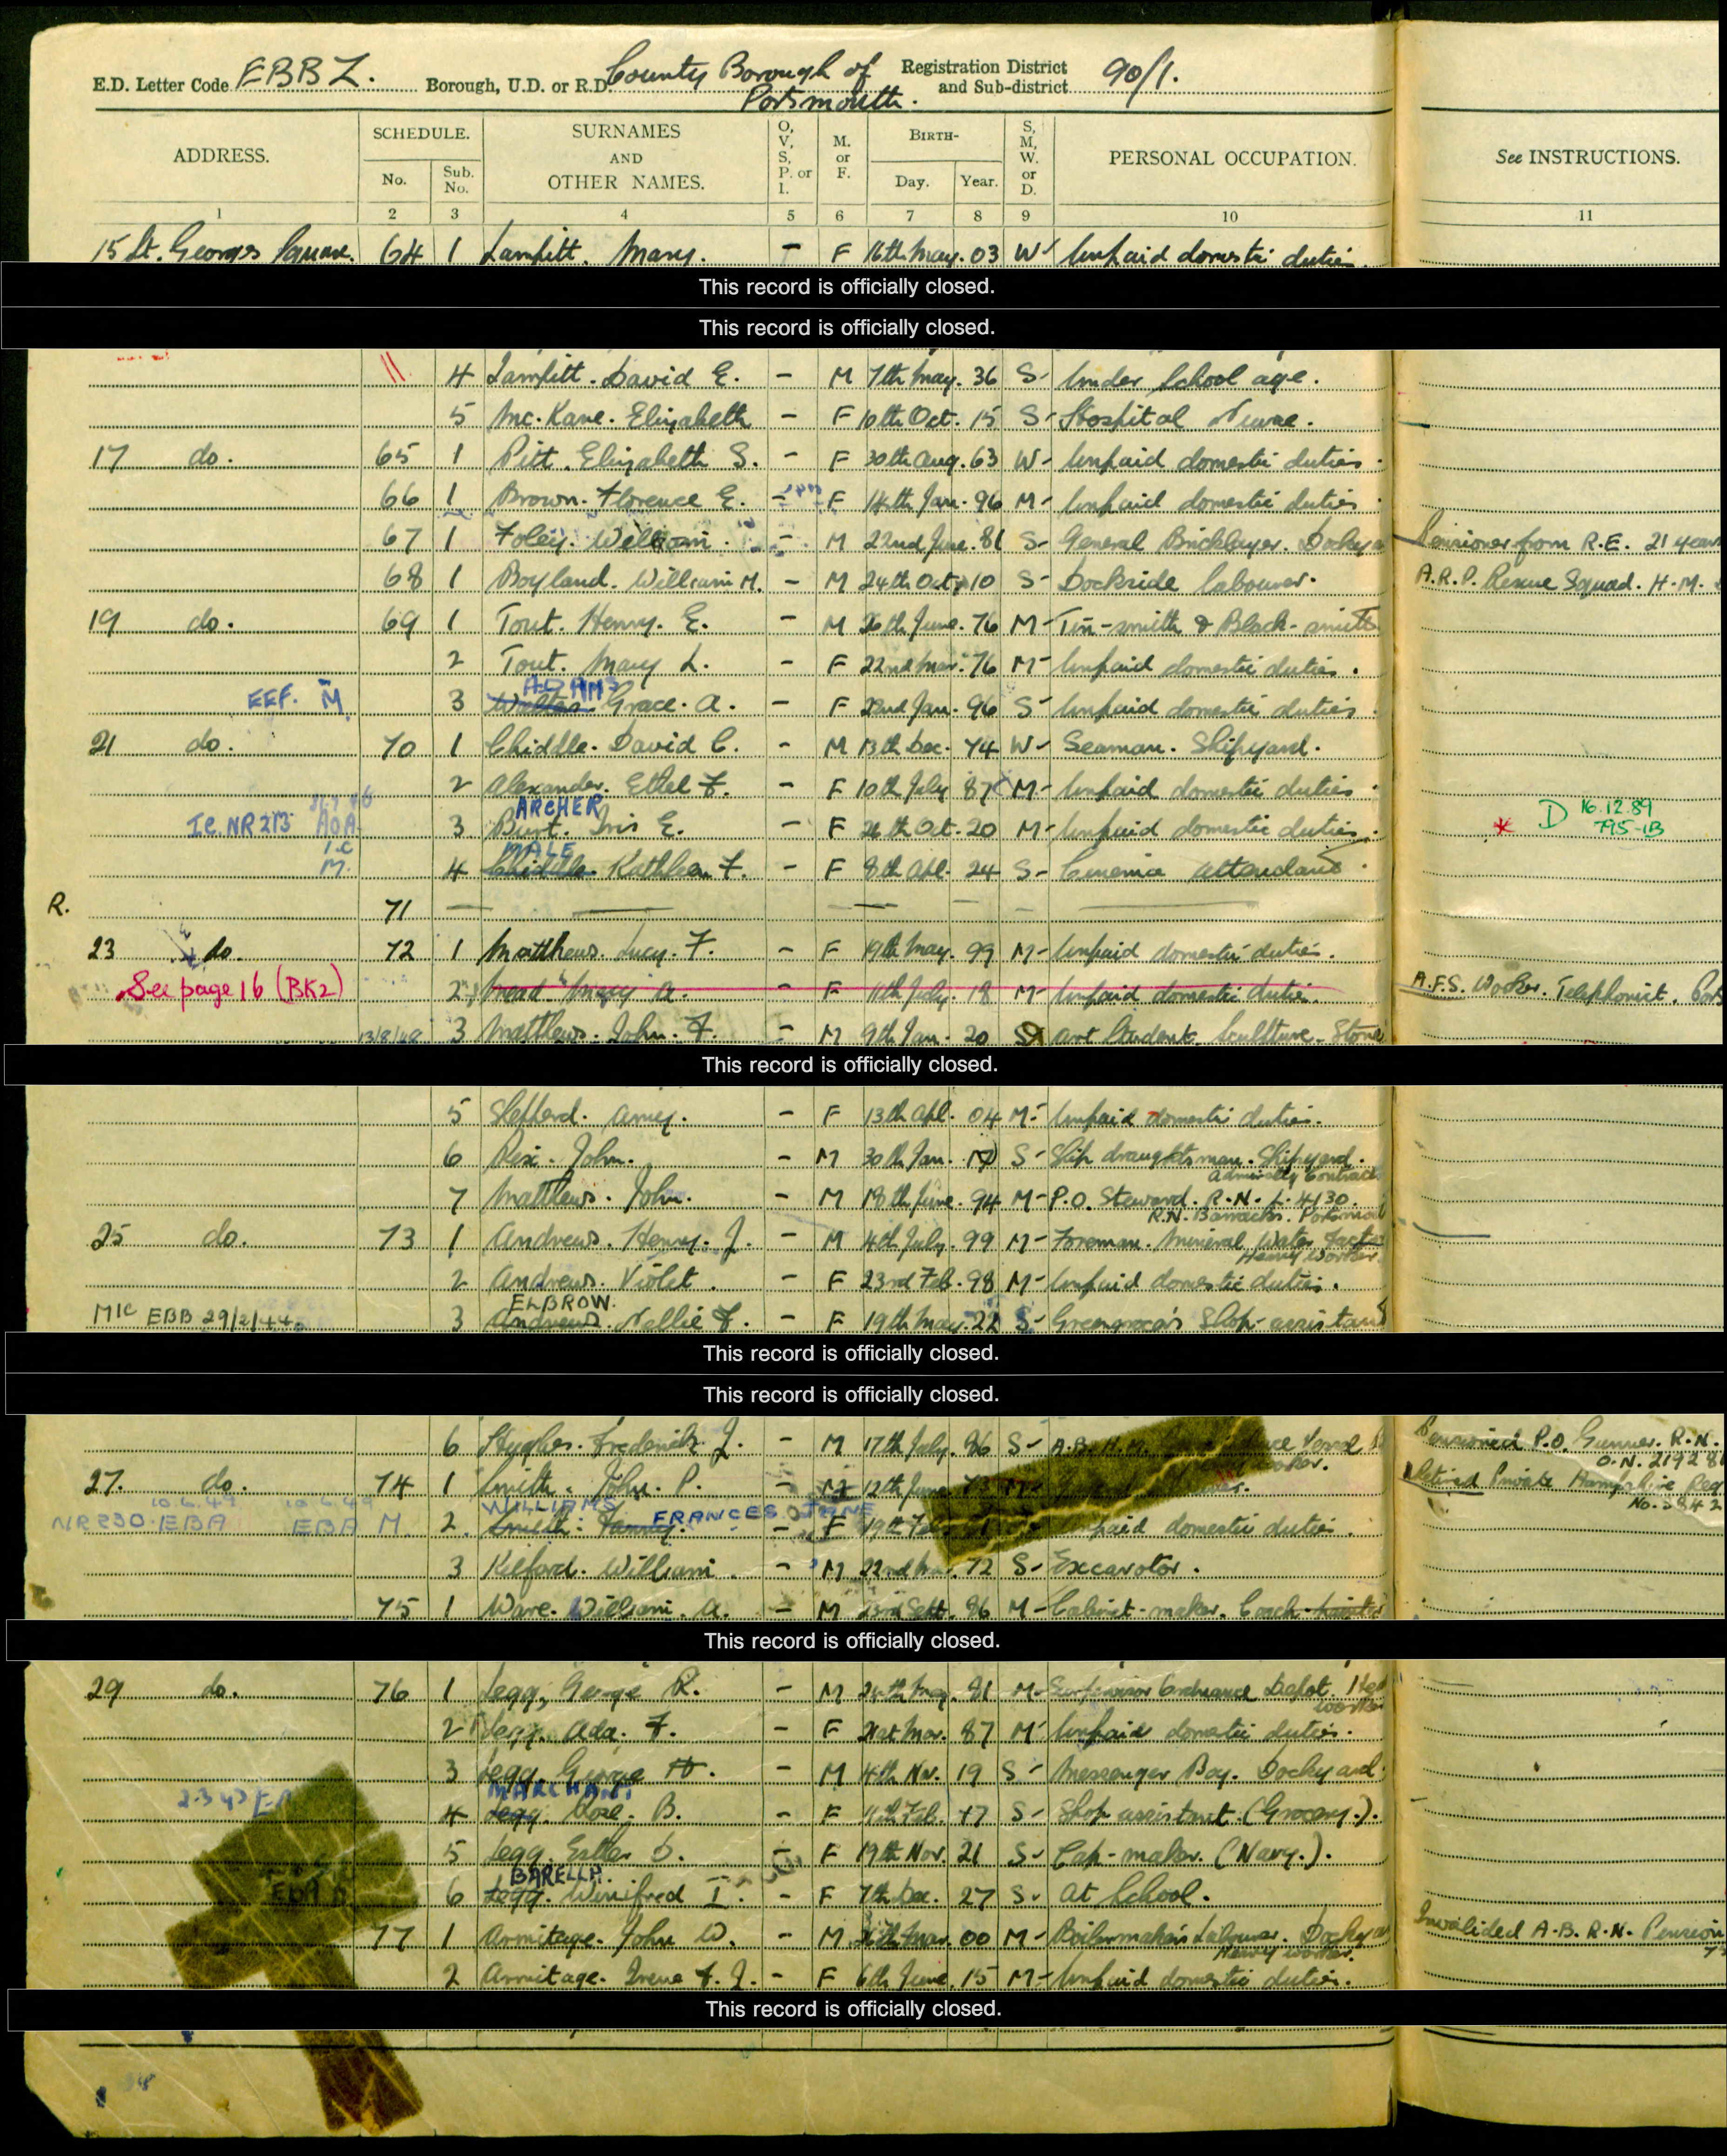 E.D. Letter Code EBBZ. Borough, U.D. or R.D. County Borough of Portsmouth. Registration District and Sub-district 90/1.
ADDRESS. SCHEDULE. No. Sub. No. SURNAMES AND OTHER NAMES. O, V, S, P. or I. M. or F. BIRTH- Day. Year. S, M, W. or D. PERSONAL OCCUPATION. See INSTRUCTIONS.
1 2 3 4 5 6 7 8 9 10 11
15 St. Georges Square. 64 1 Lampitt. Mary. - F 16th May. 03 W Unpaid domestic duties.
This record is officially closed.
This record is officially closed.
4 Lampitt. David E. - M 7th May. 36 S Under School age.
5 Mc.Kane. Elizabeth - F 10th Oct. 15 S Hospital Nurse.
17 do. 65 1 Pitt. Elizabeth S. - F 30th Aug. 63 W Unpaid domestic duties.
66 1 Brown. Florence E. - F 14th Jan. 96 M Unpaid domestic duties.
67 1 Foley. William. - M 22nd June. 81 S General Bricklayer. Pensioner from R.E. 21 years
68 1 Boyland. William H. - M 24th Oct. 10 S Dockside labourer. A.R.P. Rescue Squad. H.M.
19 do. 69 1 Tout. Henry. E. - M 26th June. 76 M Tin-smith & Black-smith
2 Tout. Mary L. - F 22nd Mar. 76 M Unpaid domestic duties.
ADAMS
EEF. M. 3 Walter. Grace. A. - F 22nd Jan. 96 S Unpaid domestic duties.
21 do. 70 1 Chiddle. David C. - M 13th Dec. 74 W Seaman. Shipyard.
2 Alexander. Ethel F. - F 10th July 87 M Unpaid domestic duties.
ARCHER
NR 273 AOA 3 Burt. Iris E. - F 26th Oct. 20 M Unpaid domestic duties. D 16.12.89 795-1B
MALE
M. 4 Chiddle. Kathleen F. - F 8th Apl. 24 S Cinema attendant.
R. 71
23 do. 72 1 Matthews. Lucy. F. - F 19th May. 99 M Unpaid domestic duties.
See page 16 (BK2) 2 Mead. Mary A. - F 11th July. 18 M Unpaid domestic duties. A.F.S. Worker. Telephonist.
13/8/48 3 Matthews. John. F. - M 9th Jan. 20 S Art Student. Sculpture. Stone
This record is officially closed.
5 Shepherd. Amey. - F 13th Apl. 04 M Unpaid domestic duties.
6 Rix. John. - M 30th Jan. S Ship draughtsman. Shipyard.
Admiralty Contract
7 Matthews. John. - M 18th June. 94 M P.O. Steward. R.N. L.4130.
R.N. Barracks.
25 do. 73 1 Andrews. Henry. J. - M 4th July. 99 M Foreman. Mineral Water
Heavy Worker.
2 Andrews. Violet. - F 23rd Feb. 98 M Unpaid domestic duties.
ELBROW.
MIC EBB 29/2/44 3 Andrews. Nellie F. - F 19th May. 22 S Greengrocer's Shop-assistant
This record is officially closed.
This record is officially closed.
6 Hughes. Frederick J. - M 17th July. 86 S A.B. Vessel Pensioned P.O. Gunner. R.N.
27. do. 74 1 Smith. John. P. - M 12th June Retired Private Hampshire Reg
WILLIAMS FRANCES JANE
NR230 EBA EBA M 2. Smith. Fanny. - F 19th Feb paid domestic duties.
3 Kilford. William. - M 22nd 72 S Excavator.
75 1 Ware. William. A. - M 23rd Sept. 86 M Cabinet-maker. Coach-painter
This record is officially closed.
29 do. 76 1 Legg. George R. - M 24th May. 81 M Ordnance Depot.
2 Legg. Ada. F. - F 21st Mar. 87 M Unpaid domestic duties.
3 Legg. George - M 4th Nov. 19 S Messenger Boy. Dockyard.
MARCHANT
4 Legg. Rose. B. - F 11th Feb. 17 S Shop assistant. (Grocery.).
5 Legg. Esther D. - F 19th Nov. 21 S Cap-maker. (Navy.).
BARELLA.
6 Legg. Winifred I. - F 7th Dec. 27 S At School.
77 1 Armitage. John W. - M Mar. 00 M Boilermaker's Labourer. Invalided A.B. R.N. Pension
Heavy worker.
2 Armitage. Irene F. J. - F 6th June. 15 M Unpaid domestic duties.
This record is officially closed.